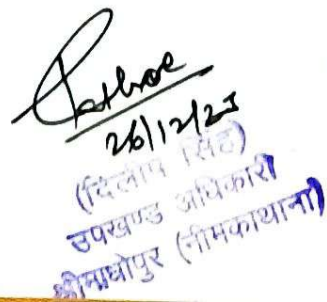 26/12/25
(दिलीप सिंह)
उपखण्ड अधिकारी
श्रीमाधोपुर (नीमकाथाना)